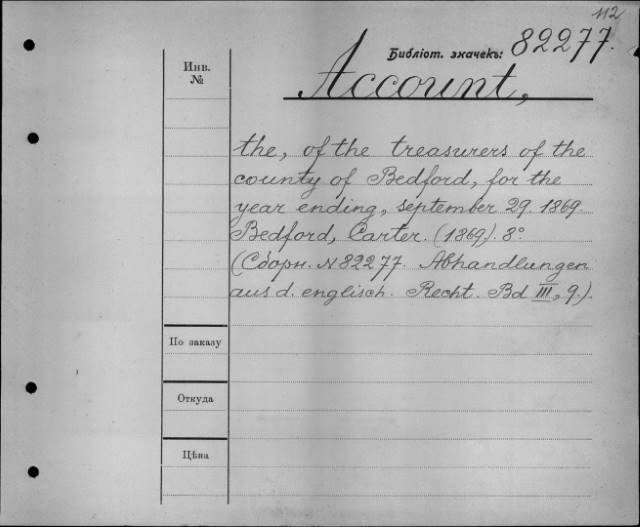 112
Библіот. значекъ: 82277.
Инв.
№
Account,
the, of the treasurers of the
county of Bedford, for the
year ending, september 29. 1869.
Bedford, Carter. (1869). 8°
(Сборн. № 82277. Abhandlungen
aus d. englisch. Recht. Bd III, 9.).
По заказу
Откуда
Цѣна